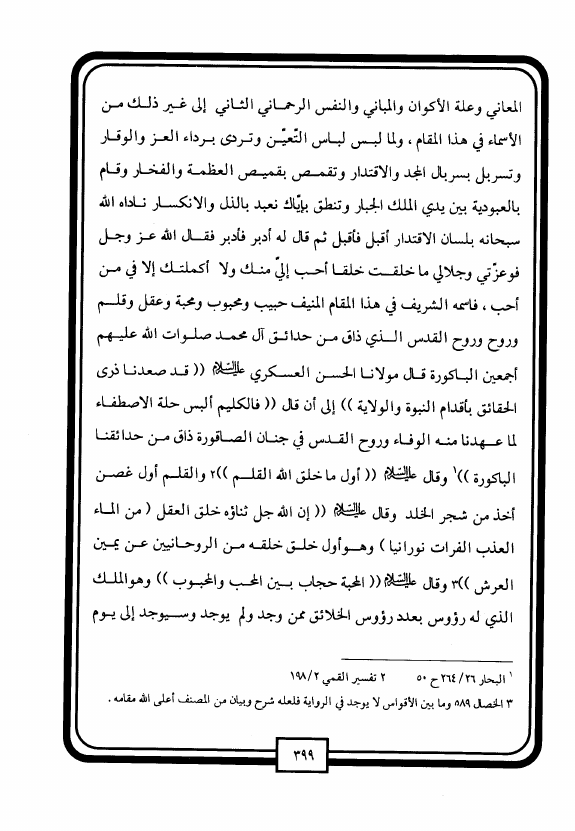 المعاني وعلة الأكوان والمباني والنفس الرحماني الثاني إلى غير ذلك من
الأسماء في هذا المقام ، ولما لبس لباس التّعيّن وتردى برداء العز والوقار
وتسربل بسربال المجد والاقتدار وتقمص بقميص العظمة والفخار وقام
بالعبودية بين يدي الملك الجبار وتنطق بإيّاك نعبد بالذل والانكسار ناداه الله
سبحانه بلسان الاقتدار أقبل فأقبل ثم قال له أدبر فأدبر فقال الله عز وجل
فوعزّتي وجلالي ما خلقت خلقا أحب إليّ منك ولا أكملتك إلا في من
أحب ، فاسمه الشريف في هذا المقام المنيف حبيب ومحبوب ومحبة وعقل وقلم
وروح وروح القدس الذي ذاق من حدائق آل محمد صلوات الله عليهم
أجمعين الباكورة قال مولانا الحسن العسكري عليه السلام (( قد صعدنا ذرى
الحقائق بأقدام النبوة والولاية )) إلى أن قال (( فالكليم ألبس حلة الاصطفاء
لما عهدنا منه الوفاء وروح القدس في جنان الصاقورة ذاق من حدائقنا
الباكورة ))١ وقال عليه السلام (( أول ما خلق الله القلم ))٢ والقلم أول غصن
أخذ من شجر الخلد وقال عليه السلام (( إن الله جل ثناؤه خلق العقل ( من الماء
العذب الفرات نورانيا ) وهو أول خلق خلقه من الروحانيين عن يمين
العرش ))٣ وقال عليه السلام (( المحبة حجاب بين المحب والمحبوب )) وهو الملك
الذي له رؤوس بعدد رؤوس الخلائق ممن وجد ولم يوجد وسيوجد إلى يوم
١ البحار ٢٦/٢٦٤ ح ٥٠ ٢ تفسير القمي ٢/١٩٨
٣ الخصال ٥٨٩ وما بين الأقواس لا يوجد في الرواية فلعله شرح وبيان من المصنف أعلى الله مقامه .
٣٩٩